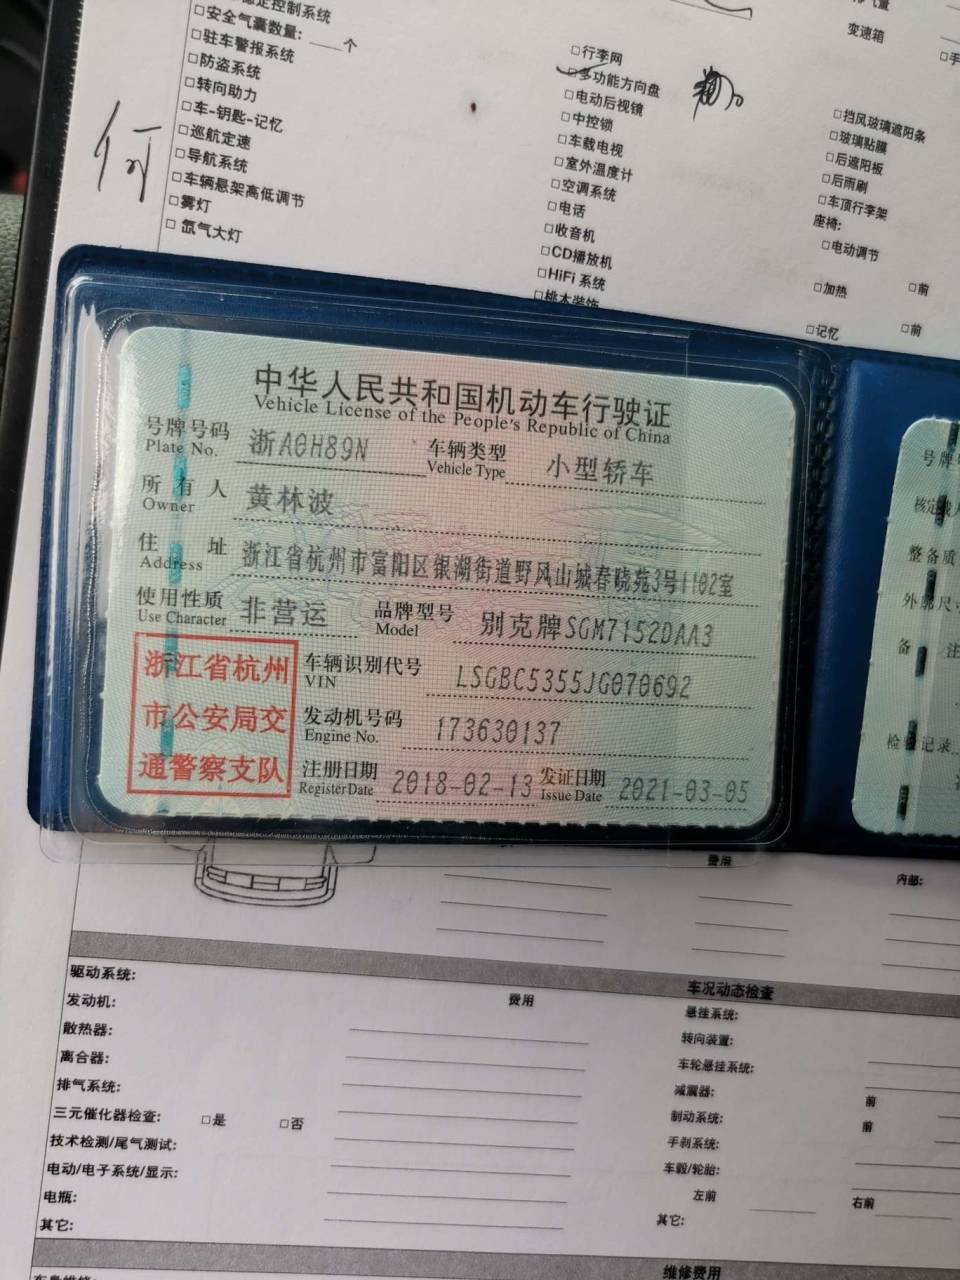 定控制系统
□安全气囊数量: ____个
□驻车警报系统
□防盗系统
□转向助力
□车-钥匙-记忆
□巡航定速
□导航系统
□车辆悬架高低调节
□雾灯
□ 氙气大灯
何
□行李网
□多功能方向盘
□电动后视镜
□中控锁
□车载电视
□室外温度计
□空调系统
□电话
□收音机
□CD播放机
□HiFi 系统
□桃木装饰
变速箱
□挡风玻璃遮阳条
□玻璃贴膜
□后遮阳板
□后雨刷
□车顶行李架
座椅:
□电动调节
□加热 □前
□记忆 □前
中华人民共和国机动车行驶证
Vehicle License of the People's Republic of China
号牌号码 浙A0H89N 车辆类型 小型轿车
Plate No. Vehicle Type
所有人 黄林波
Owner
住址 浙江省杭州市富阳区银湖街道野风山城春晓苑3号1102室
Address
使用性质 非营运 品牌型号 别克牌SGM7152DAA3
Use Character Model
浙江省杭州
市公安局交
通警察支队
车辆识别代号 LSGBC5355JG070692
VIN
发动机号码 173630137
Engine No.
注册日期 2018-02-13 发证日期 2021-03-05
Register Date Issue Date
号牌号
核定载人
整备质
外廓尺寸
备 注
检验记录
费用
内部:
驱动系统:
发动机: 费用
散热器:
离合器:
排气系统:
三元催化器检查: □是 □否
技术检测/尾气测试:
电动/电子系统/显示:
电瓶:
其它:
车况动态检查
悬挂系统:
转向装置:
车轮悬挂系统:
减震器: 前
制动系统: 前
手刹系统:
车毂/轮胎:
左前 右前
其它:
维修费用